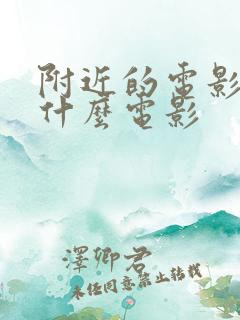 附近的電影
什麼電影
澤卿君
未經同意禁止轉載